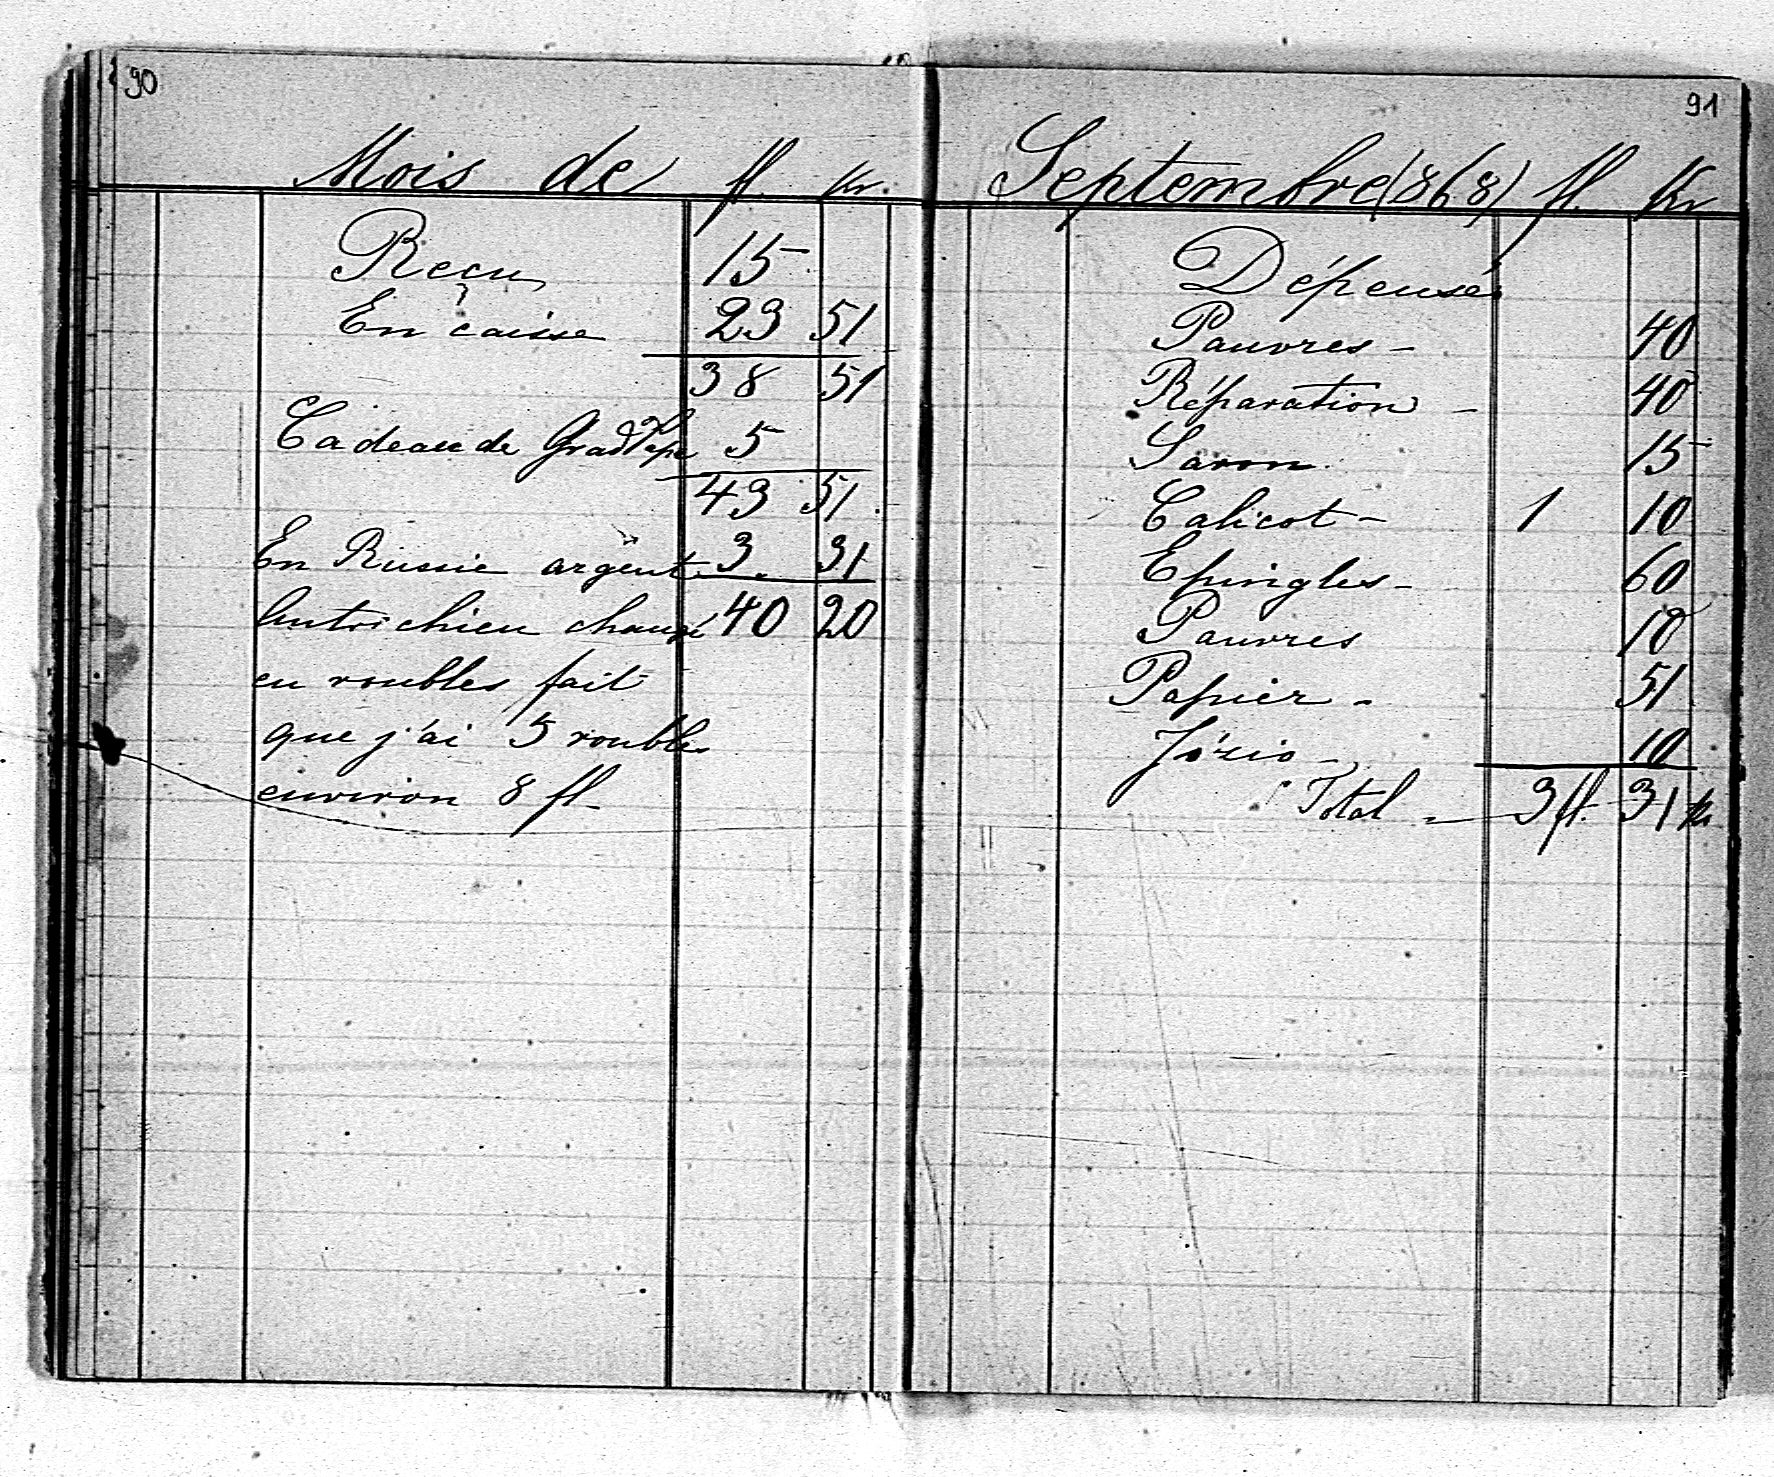 90
Mois de fl. Kr.
Reçu 15
En caisse 23 51
38 51
Cadeau de Grad Pepe 5
43 51
En Russie argent 3. 31
Autrichien changé 40 20
en roubles fait
que j'ai 5 roubles
environ 8 fl
91
Septembre (868) fl. Kr
Dépensé
Pauvres - 40
Réparation - 40
Savon 15
Calicot - 1 10
Epingles - 60
Pauvres 10
Papier - 51
Józio - 10
Total - 3 fl. 31 kr